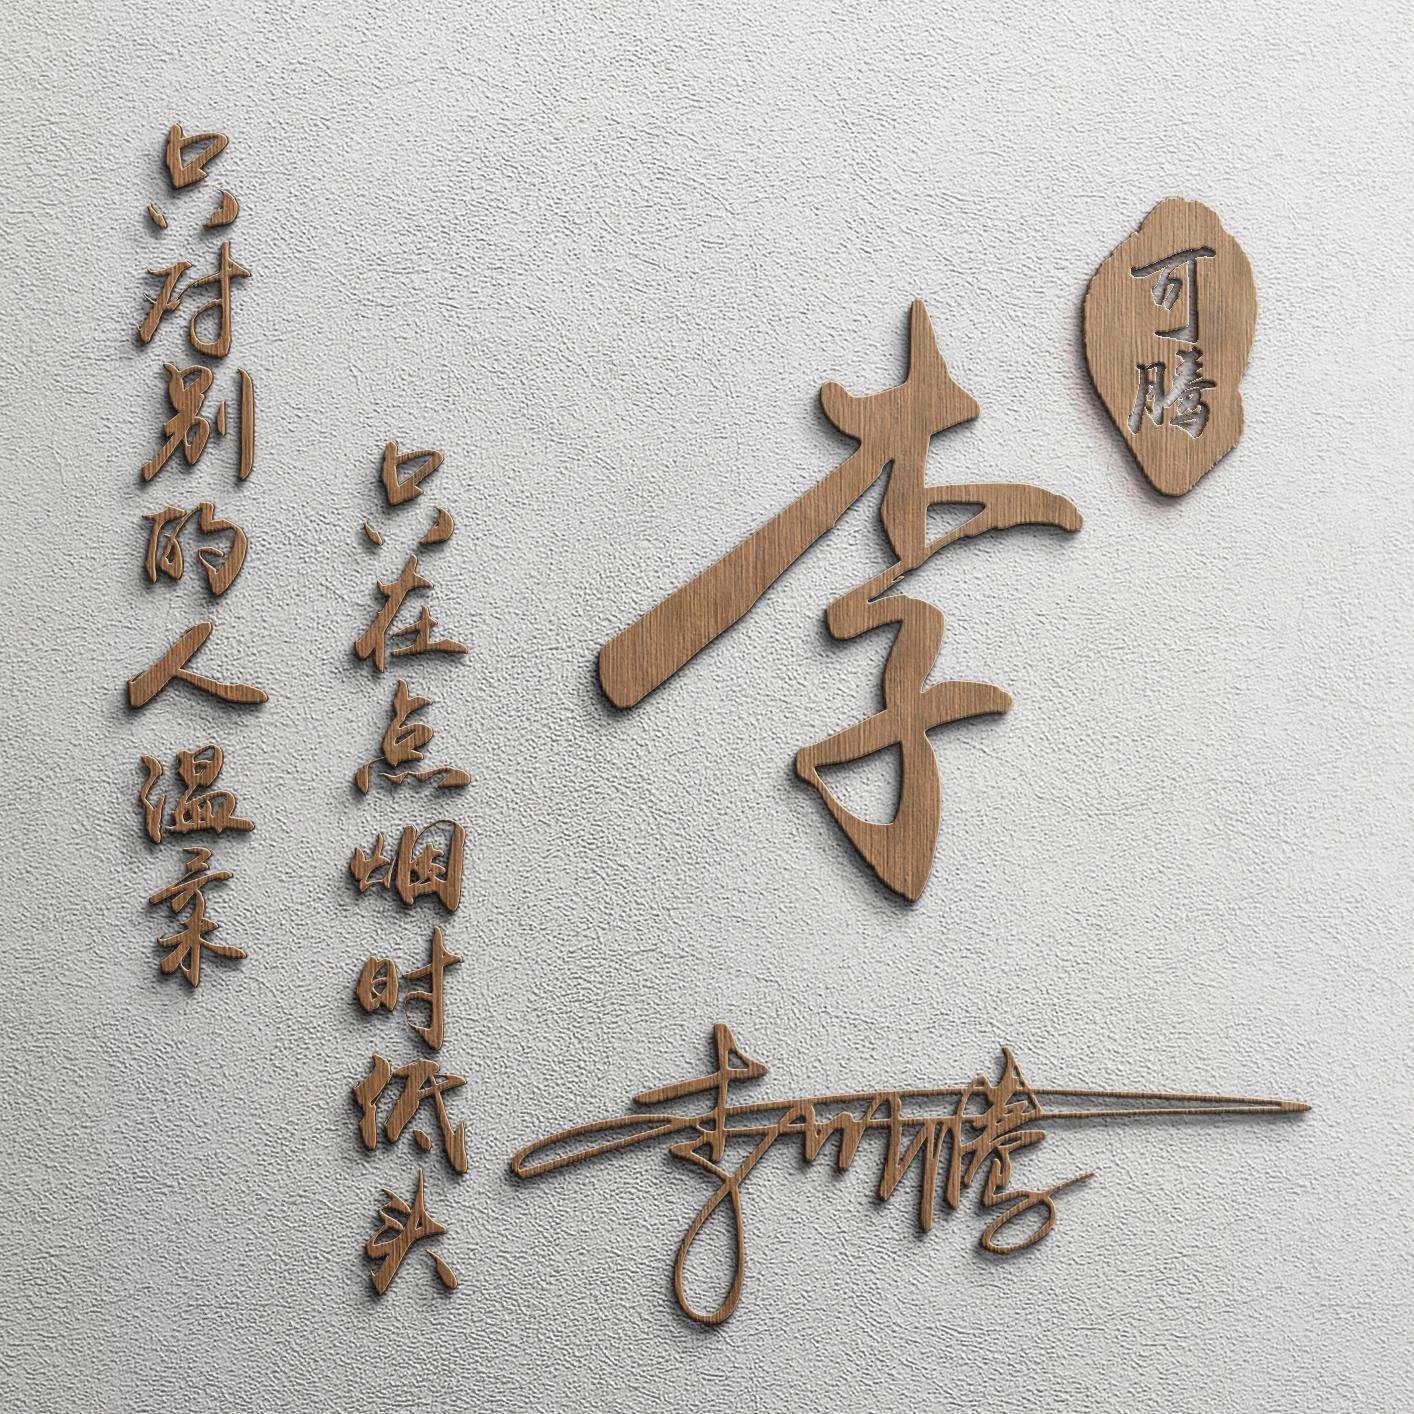 只对别的人温柔
只在点烟时低头
李
可腾
李可腾